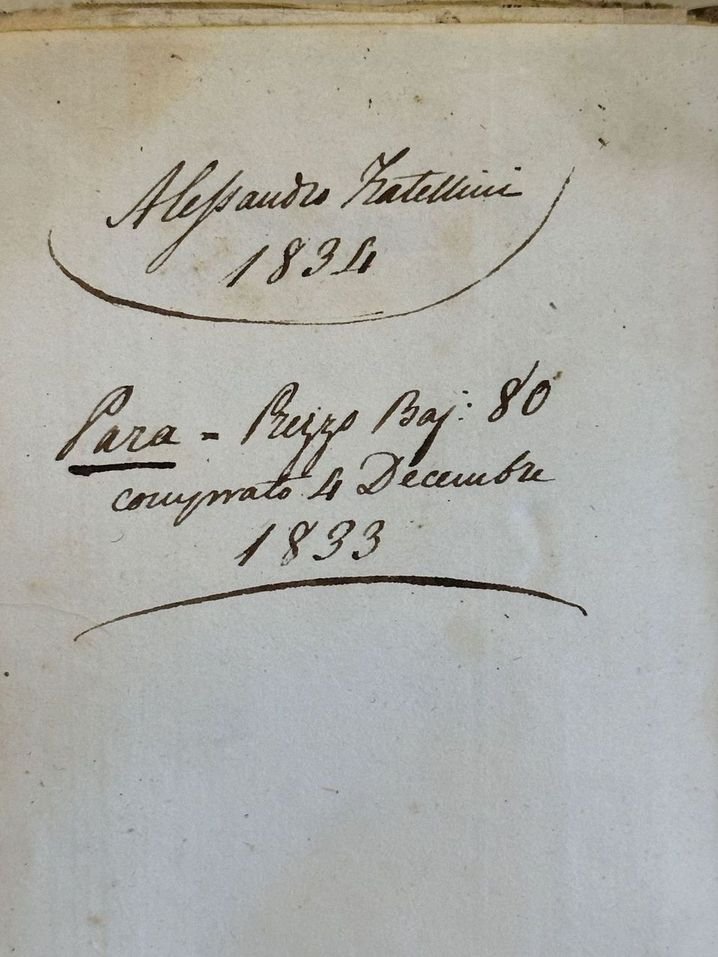 Alessandro Fratellini
1834
Para = Prezzo Baj: 80
comprato 4 Decembre
1833